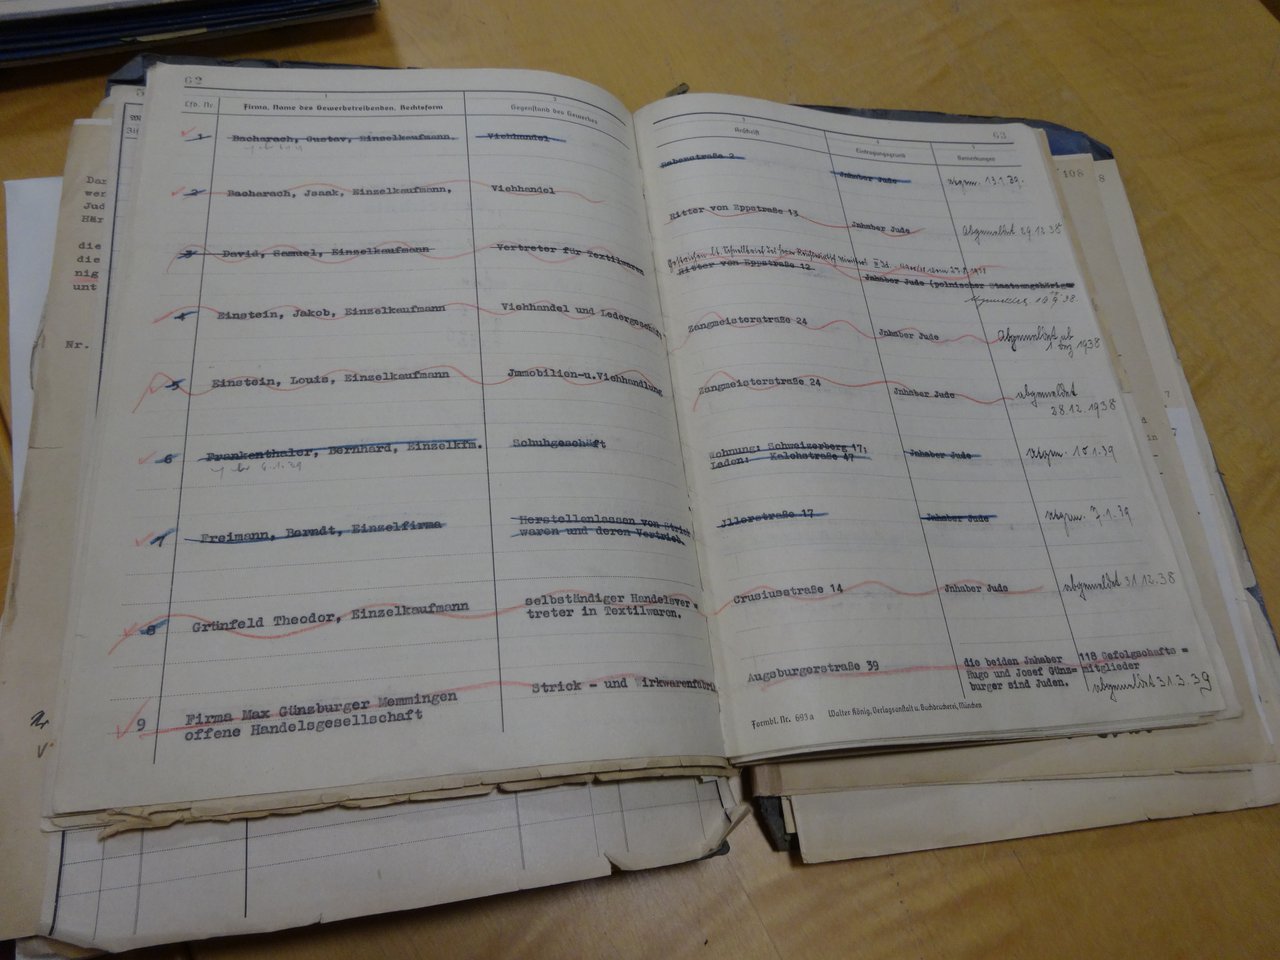 62
Lfd. Nr.
1
Firma, Name des Gewerbetreibenden, Rechtsform
2
Gegenstand des Gewerbes
1
Bacharach, Gustav, Einzelkaufmann.
Viehhandel
2
Bacharach, Jsaak, Einzelkaufmann,
Viehhandel
3
David, Samuel, Einzelkaufmann
Vertreter für Textilwaren
4
Einstein, Jakob, Einzelkaufmann
Viehhandel und Ledergeschäft
5
Einstein, Louis, Einzelkaufmann
Jmmobilien-u.Viehhandlung
6
Frankenthaler, Bernhard, Einzelkfm.
Schuhgeschäft
7
Freimann, Berndt, Einzelfirma
Herstellenlassen von Strick
waren und deren Vertrieb.
8
Grünfeld Theodor, Einzelkaufmann
selbständiger Handelsver =
treter in Textilwaren.
9
Firma Max Günzburger Memmingen
offene Handelsgesellschaft
Strick - und Wirkwarenfabrik
63
3
Anschrift
4
Eintragungsgrund
5
Bemerkungen
Rabenstraße 2
Jnhaber Jude
abgem. 13.1.39.
Ritter von Eppstraße 13
Jnhaber Jude
Abgemeldet 29.12.38
Ritter von Eppstraße 12
Jnhaber Jude (polnischer Staatsangehöriger
Zangmeisterstraße 24
Jnhaber Jude
Abgemeldet ab
1938
Zangmeisterstraße 24
Jnhaber Jude
abgemeldet
28.12.1938
Wohnung: Schweizerberg 17;
Laden: Kalchstraße 47
Jnhaber Jude
abgem. 10.1.39
Jllerstraße 17
Jnhaber Jude
abgem. 7.1.39
Crusiusstraße 14
Jnhaber Jude
abgemeldet 31.12.38
Augsburgerstraße 39
die beiden Jnhaber
Hugo und Josef Günz=
burger sind Juden.
118 Gefolgschafts =
mitglieder
abgemeldet 31.3.39
Formbl. Nr. 693a Walter König, Verlagsanstalt u. Buchdruckerei, München
wer
Jud
Här
die
die
nig
unt
Nr.
108
8